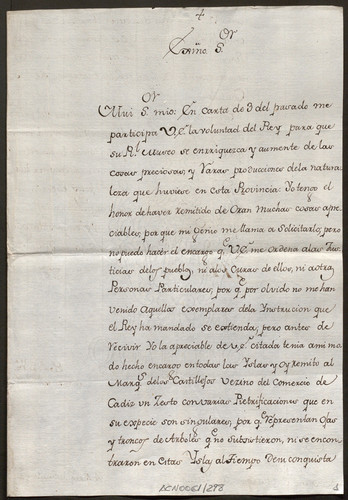 +
Exmo. Sor.
Mui Sor. mio: En carta de 3 del pasado me
participa V.E. la voluntad del Rey para que
su Rl. Museo se enrriquezca y aumente de las
cosas preciosas, y raras producciones de la natura-
leza que huviese en esta Provincia: Yo tengo el
honor de haver remitido de Oran muchas cosas apre-
ciables, por que mi Genio me llama a Solicitarlo; pero
no puedo hacer el encargo qe. V.E. me ordena a las Jus-
ticias de los pueblos, ni a los Curas de ellos, ni a otras
Personas Particulares, por qe. por olvido no me han
venido aquellos exemplares de la Instrucion que
el Rey ha mandado se extienda, pero antes de
Recivir Yo la apreciable de V.E. citada tenia a mi ma-
do hecho encargo en todas las Yslas y oy remito al
Marqs. de los Castillejos Vezino del Comercio de
Cadiz un Zesto con varias Pietrificaciones que en
su expecie son singulares, por qe. representan Ojas
y troncos de Arboles qe. no Subsistieron, ni se encon-
traron en estas Yslas al Tiempo de su conquista
ACN0061/278